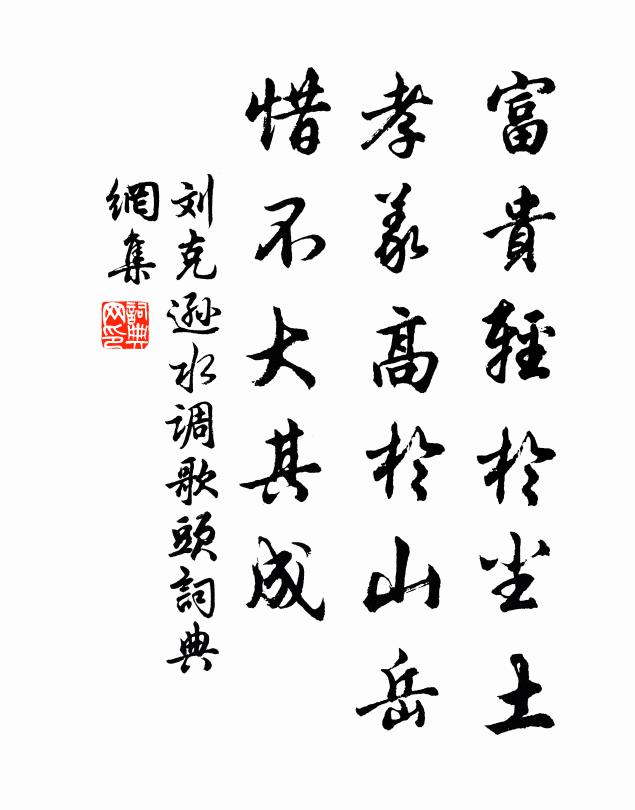 富貴輕於尘土
孝義高於山岳
惜不大其成
刘克遜水调歌頭詞典
網集
詞典
网印